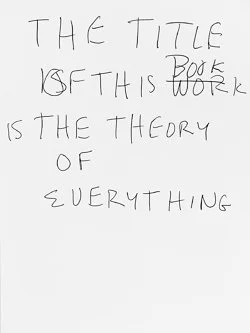 THE TITLE
OF THIS BOOK
IS THE THEORY
OF
EVERYTHING